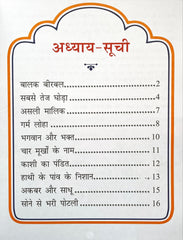 अध्याय-सूची
बालक बीरबल.....................2
सबसे तेज घोड़ा..................4
असली मालिक..................7
गर्म लोहा.........................8
भगवान और भक्त...............10
चार मूर्खों के नाम...............11
काशी का पंडित................12
हाथी के पांव के निशान........13
अकबर और साधू...............15
सोने से भरी पोटली............16